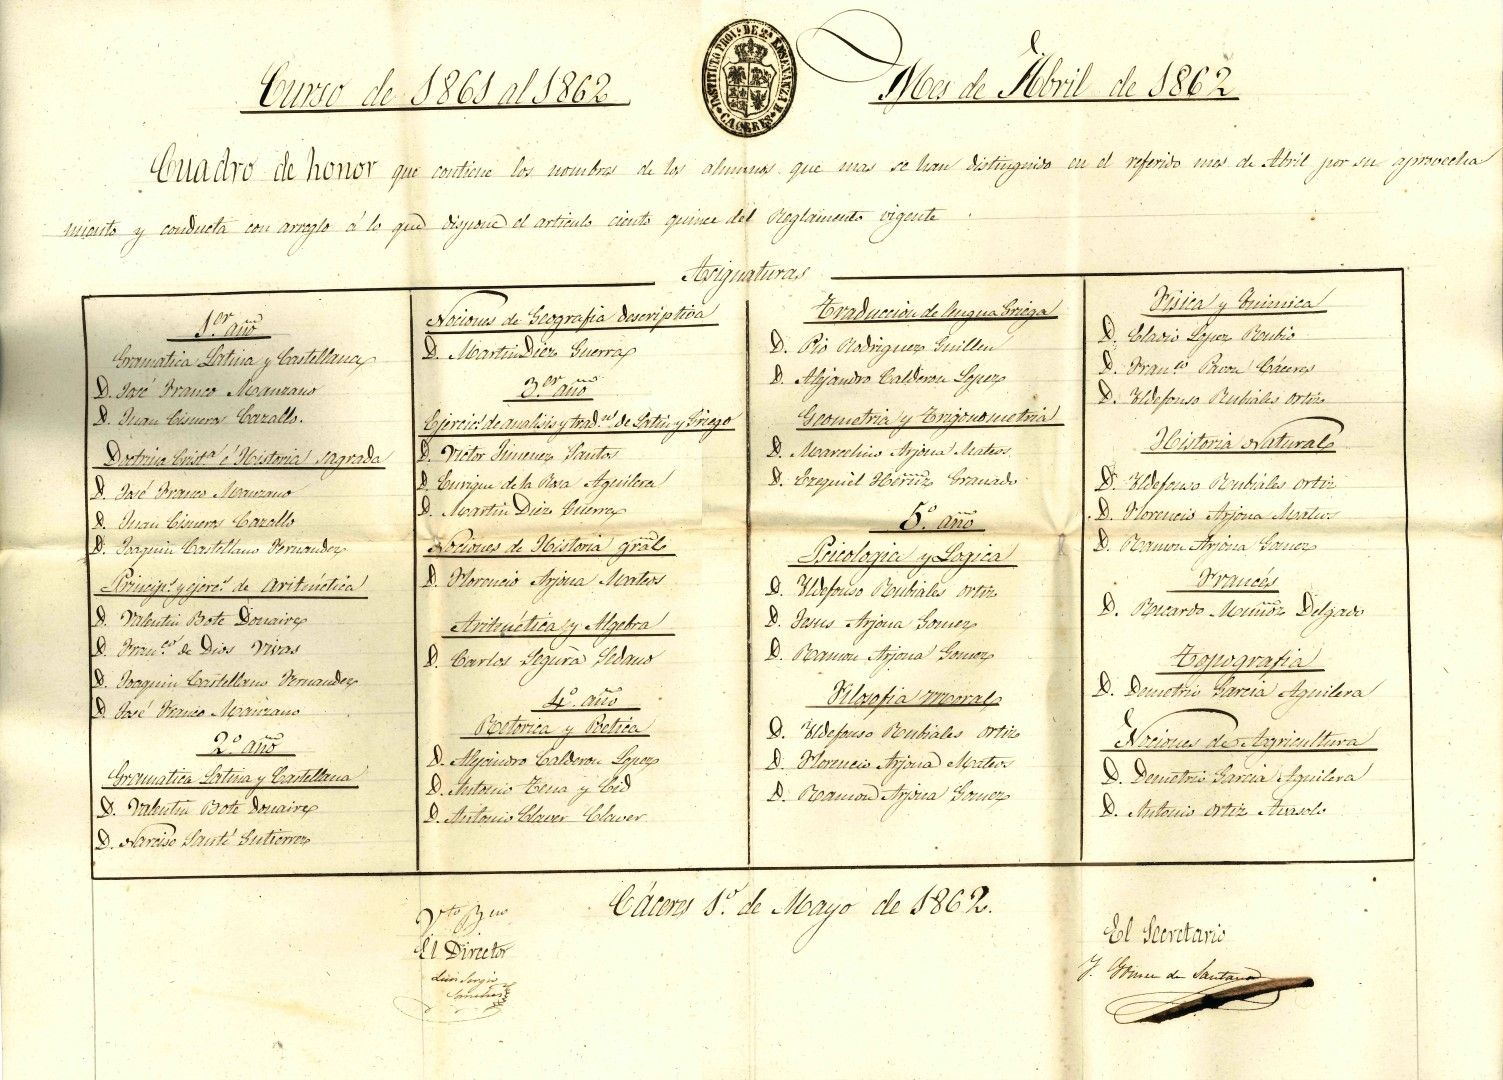 Curso de 1861 al 1862
INSTITUTO PROV.L DE 2.A ENSEÑANZA
CACERES
Mes de Abril de 1862
Cuadro de honor que contiene los nombres de los alumnos que mas se han distinguido en el referido mes de Abril por su aprovecha
miento y conducta con arreglo á lo que dispone el articulo ciento quince del Reglamento vigente.
Asignaturas
1.er año
Gramatica Latina y Castellana
D. José Franco Manzano
D. Juan Cisneros Cazallo.
Doctrina Crist.a é Historia Sagrada
D. José Franco Manzano
D. Juan Cisneros Cazallo
D. Joaquin Castellano Fernandez
Princip.s y ejerc.s de aritmética
D. Valentin Bote Donaire
D. Fran.co de Dios Vivas
D. Joaquin Castellano Fernandez
D. José Franco Manzano
2.o año
Gramatica Latina y Castellana
D. Valentin Bote Donaire
D. Narciso Santé Gutierrez
Nociones de Geografia descriptiva
D. Martin Diez Guerra
3.er año
Ejercic.s de analisis y trad.on de Latin y Griego
D. Victor Jimenez Santos
D. Enrique de la Rosa Aguilera
D. Martin Diez Guerra
Nociones de Historia gral
D. Florencio Arjona Mateos
Aritmética y Algebra
D. Carlos Segura Sedano
4.o año
Retorica y Poética
D. Alejandro Calderon Lopez
D. Antonio Tena y Cid
D. Antonio Claver Claver
Traduccion de lengua Griega
D. Pio Rodriguez Guillen
D. Alejandro Calderon Lopez
Geometria y Trigonometria
D. Marcelino Arjona Mateos
D. Ezequiel Hernz Granado
5.o año
Psicologia y Logica
D. Yldefonso Rubiales Ortiz
D. Jesus Arjona Gomez
D. Ramon Arjona Gomez
Filosofia moral
D. Yldefonso Rubiales Ortiz
D. Florencio Arjona Mateos
D. Ramon Arjona Gomez
Fisica y Quimica
D. Eladio Lopez Rubio
D. Fran.co Pavon Cáceres
D. Yldefonso Rubiales Ortiz
Historia Natural
D. Yldefonso Rubiales Ortiz
D. Florencio Arjona Mateos
D. Ramon Arjona Gomez
Francés
D. Ricardo Muñoz Delgado
Topografia
D. Demetrio Garcia Aguilera
Nociones de Agricultura
D. Demetrio Garcia Aguilera
D. Antonio Ortiz
Cáceres 1.o de Mayo de 1862.
V.to B.no
El Director
Luis Sergio
Sanchez
El Secretario
J. Gomez de Santana